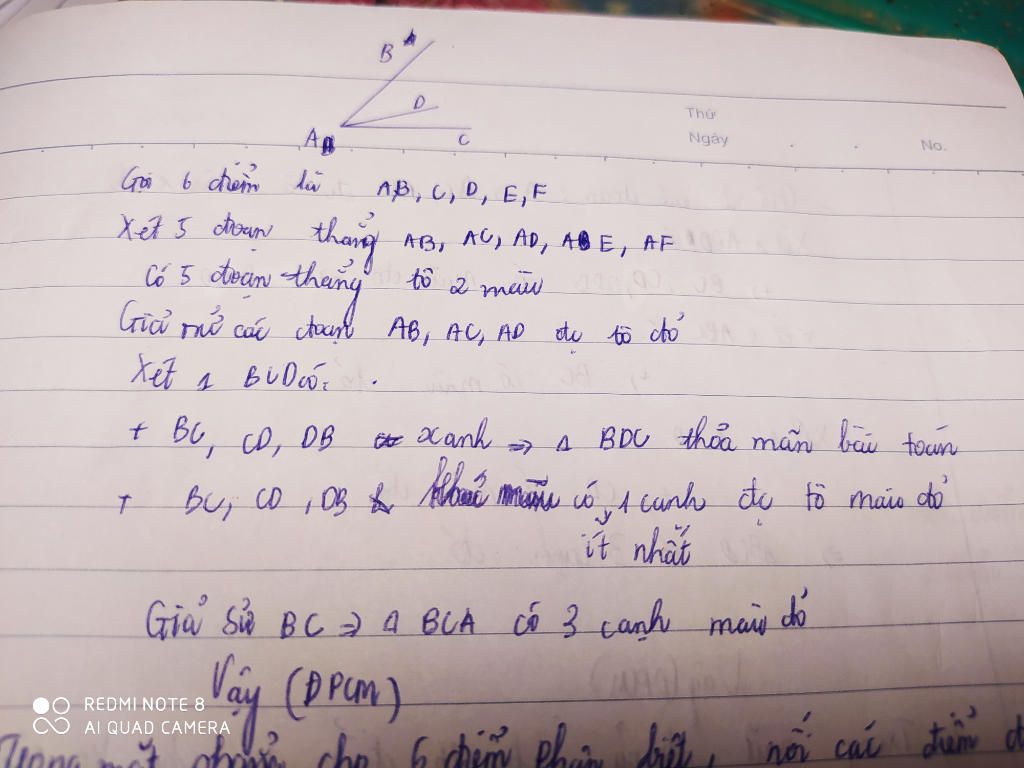 B
D
A
C
Thứ
Ngày
No.
Gọi 6 điểm là A,B, C, D, E, F
Xét 5 đoạn thẳng AB, AC, AD, AE, AF
Có 5 đoạn thẳng tô 2 màu
Giả sử các đoạn AB, AC, AD đc tô đỏ
Xét Δ BCD có:
+ BC, CD, DB xanh => Δ BDC thỏa mãn bài toán
+ BC, CD, DB có 1 cạnh đc tô màu đỏ
ít nhất
Giả sử BC => Δ BCA có 3 cạnh màu đỏ
Vậy (ĐPCM)
REDMI NOTE 8
AI QUAD CAMERA
Trong mặt phẳng cho 6 điểm phân biệt, nối các điểm